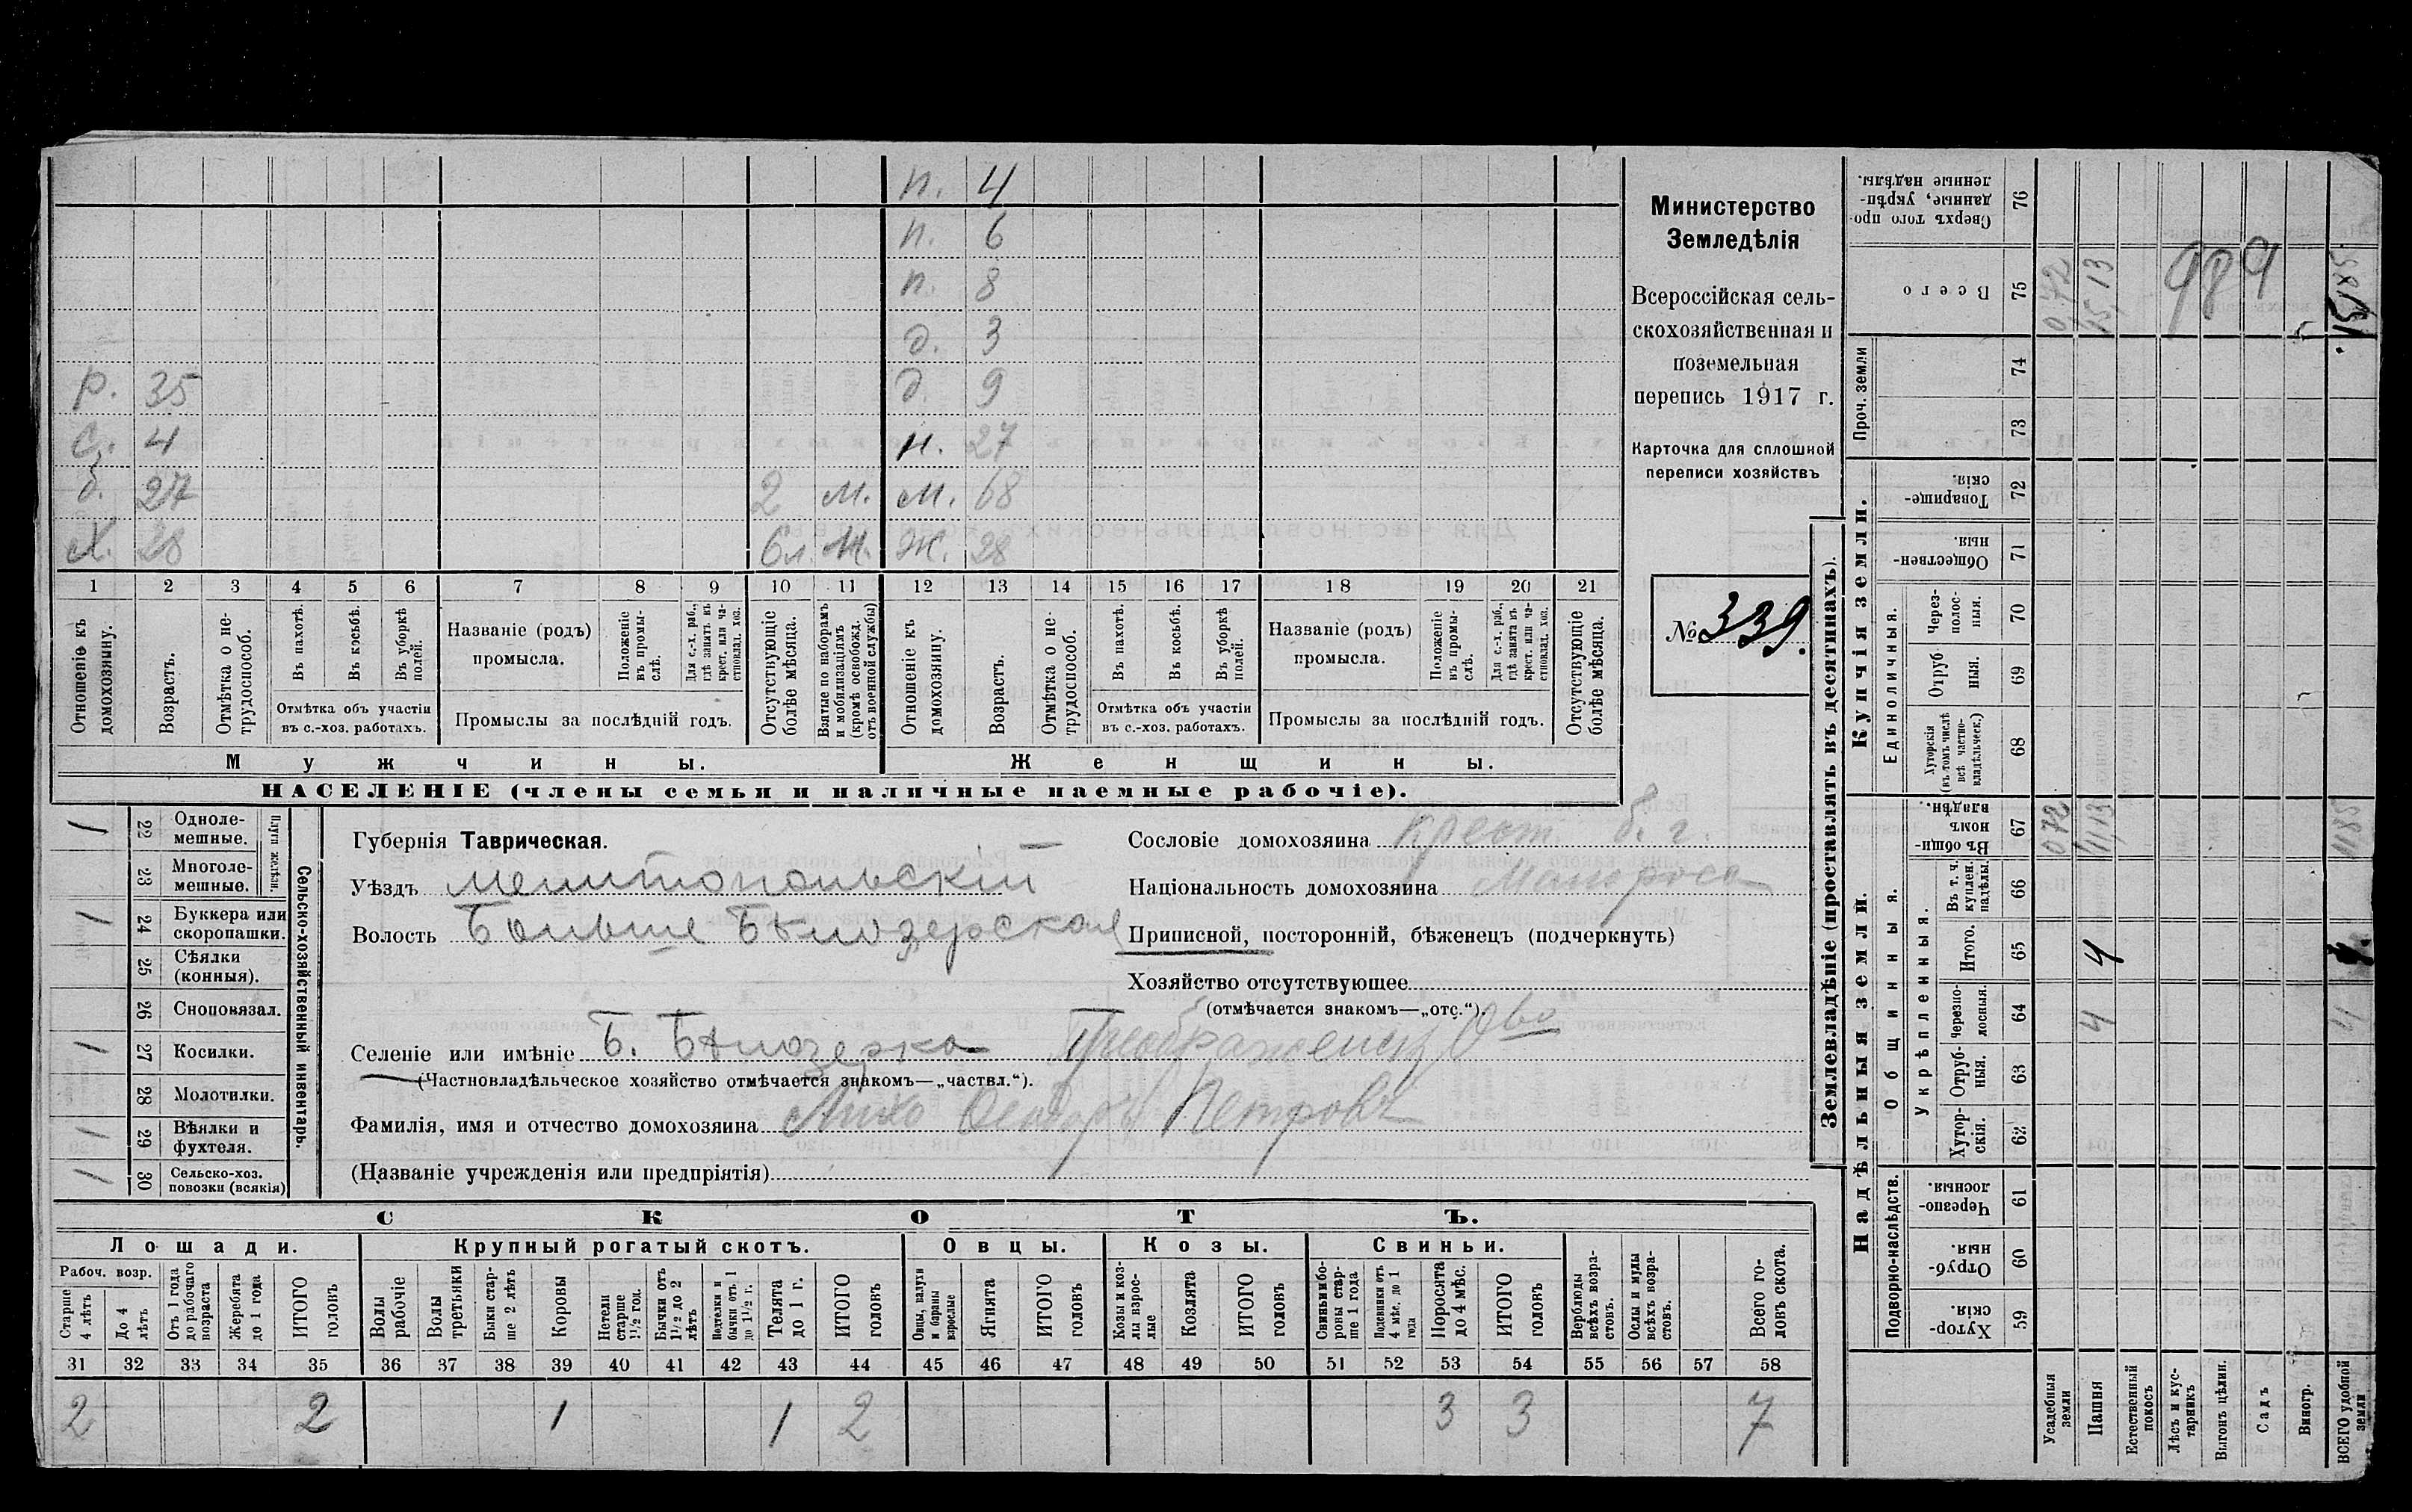 п. 4
п. 6
п. 8
д. 3
р. 35 д. 9
с. 4 н. 27
б. 27 2 м. м. 68
х. 28 бл. м. ж. 28
1 2 3 4 5 6 7 8 9 10 11 12 13 14 15 16 17 18 19 20 21
Отношеніе къ домохозяину.
Возрастъ.
Отмѣтка о не-трудоспособ.
Въ пахотѣ.
Въ косьбѣ.
Въ уборкѣ полей.
Отмѣтка объ участіи
въ с.-хоз. работахъ.
Названіе (родъ)
промысла.
Положеніе въ промы-слѣ.
Для с.-х. раб., гдѣ занятъ въ крест. или ча-стновлад. хоз.
Промыслы за послѣдній годъ.
Отсутствующіе болѣе мѣсяца.
Взятые по наборамъ и мобилизаціямъ (кромѣ освобожд. отъ военной службы)
Отношеніе къ домохозяину.
Возрастъ.
Отмѣтка о не-трудоспособ.
Въ пахотѣ.
Въ косьбѣ.
Въ уборкѣ полей.
Отмѣтка объ участіи
въ с.-хоз. работахъ.
Названіе (родъ)
промысла.
Положеніе въ промы-слѣ.
Для с.-х. раб., гдѣ занята въ крест. или ча-стновлад. хоз.
Промыслы за послѣдній годъ.
Отсутствующіе болѣе мѣсяца.
Мужчины. Женщины.
НАСЕЛЕНІЕ (члены семьи и наличные наемные рабочіе).
Министерство
Земледѣлія
Всероссійская сель-
скохозяйственная и
поземельная
перепись 1917 г.
Карточка для сплошной
переписи хозяйствъ
№ 339.
Сельско-хозяйственный инвентарь.
Плуги желѣзн.
1 22 Одноле-мешные.
23 Многоле-мешные.
1 24 Буккера или скоропашки.
25 Сѣялки (конныя).
26 Сноповязал.
1 27 Косилки.
28 Молотилки.
1 29 Вѣялки и фухтеля.
1 30 Сельско-хоз. повозки (всякія)
Губернія Таврическая.
Уѣздъ Мелитопольскій
Волость Больше Бѣлозерская
Сословіе домохозяина крест. б. г.
Національность домохозяина Малоросс
Приписной, посторонній, бѣженецъ (подчеркнуть)
Хозяйство отсутствующее
(отмѣчается знакомъ—„отс.“).
Селеніе или имѣніе Б. Бѣлозерка Преображенск. О-во
(Частновладѣльческое хозяйство отмѣчается знакомъ—„частвл.“).
Фамилія, имя и отчество домохозяина Лихо Ѳеодоръ Петровъ
(Названіе учрежденія или предпріятія)
СКОТЪ.
Лошади. Крупный рогатый скотъ. Овцы. Козы. Свиньи.
Рабоч. возр.
Старше 4 лѣтъ
До 4 лѣтъ
Отъ 1 года до рабочаго возраста
Жеребята до 1 года
ИТОГО головъ
Волы рабочіе
Волы третьяки
Быки стар-ше 2 лѣтъ
Коровы
Нетели старше 1½ год.
Бычки отъ 1½ до 2 лѣтъ
Подтелки и бычки отъ 1 до 1½ г.
Телята до 1 г.
ИТОГО головъ
Овцы, валухи и бараны взрослые
Ягнята
ИТОГО головъ
Козы и коз-лы взрос-лые
Козлята
ИТОГО головъ
Свиньи и бо-ровы стар-ше 1 года
Подсвинки отъ 4 мѣс. до 1 года
Поросята до 4 мѣс.
ИТОГО головъ
Верблюды всѣхъ возра-стовъ.
Ослы и мулы всѣхъ возра-стовъ.
Всего го-ловъ скота.
31 32 33 34 35 36 37 38 39 40 41 42 43 44 45 46 47 48 49 50 51 52 53 54 55 56 57 58
2 2 1 1 2 3 3 7
Землевладѣніе (проставлять въ десятинахъ).
Надѣльныя земли. Купчія земли. Проч. земли
Подворно-наслѣдств. Общинныя. Укрѣпленныя. Единоличныя.
Хутор-скія. 59
Отруб-ныя. 60
Черезпо-лосныя. 61
Хутор-скія. 62
Отруб-ныя. 63
Черезпо-лосныя. 64
Итого. 65
Въ т. ч. куплен. надѣлы. 66
Въ общи-номъ владѣн. 67
Хуторскія (въ томъ числѣ всѣ частно-владѣльческ.) 68
Отруб-ныя. 69
Через-полос-ныя. 70
Обществен-ныя. 71
Товарище-скія. 72
73
74
Всего 75
Сверхъ того про-данные, укрѣп-ленные надѣлы. 76
Усадебныя земли 072 0,72
Пашня 4 4 11,13 15,13
Естественный покосъ
Лѣсъ и кус-тарникъ
Выгонъ цѣлин.
Садъ
Виногр.
ВСЕГО удобной земли 4 4. 1185 15,85
989